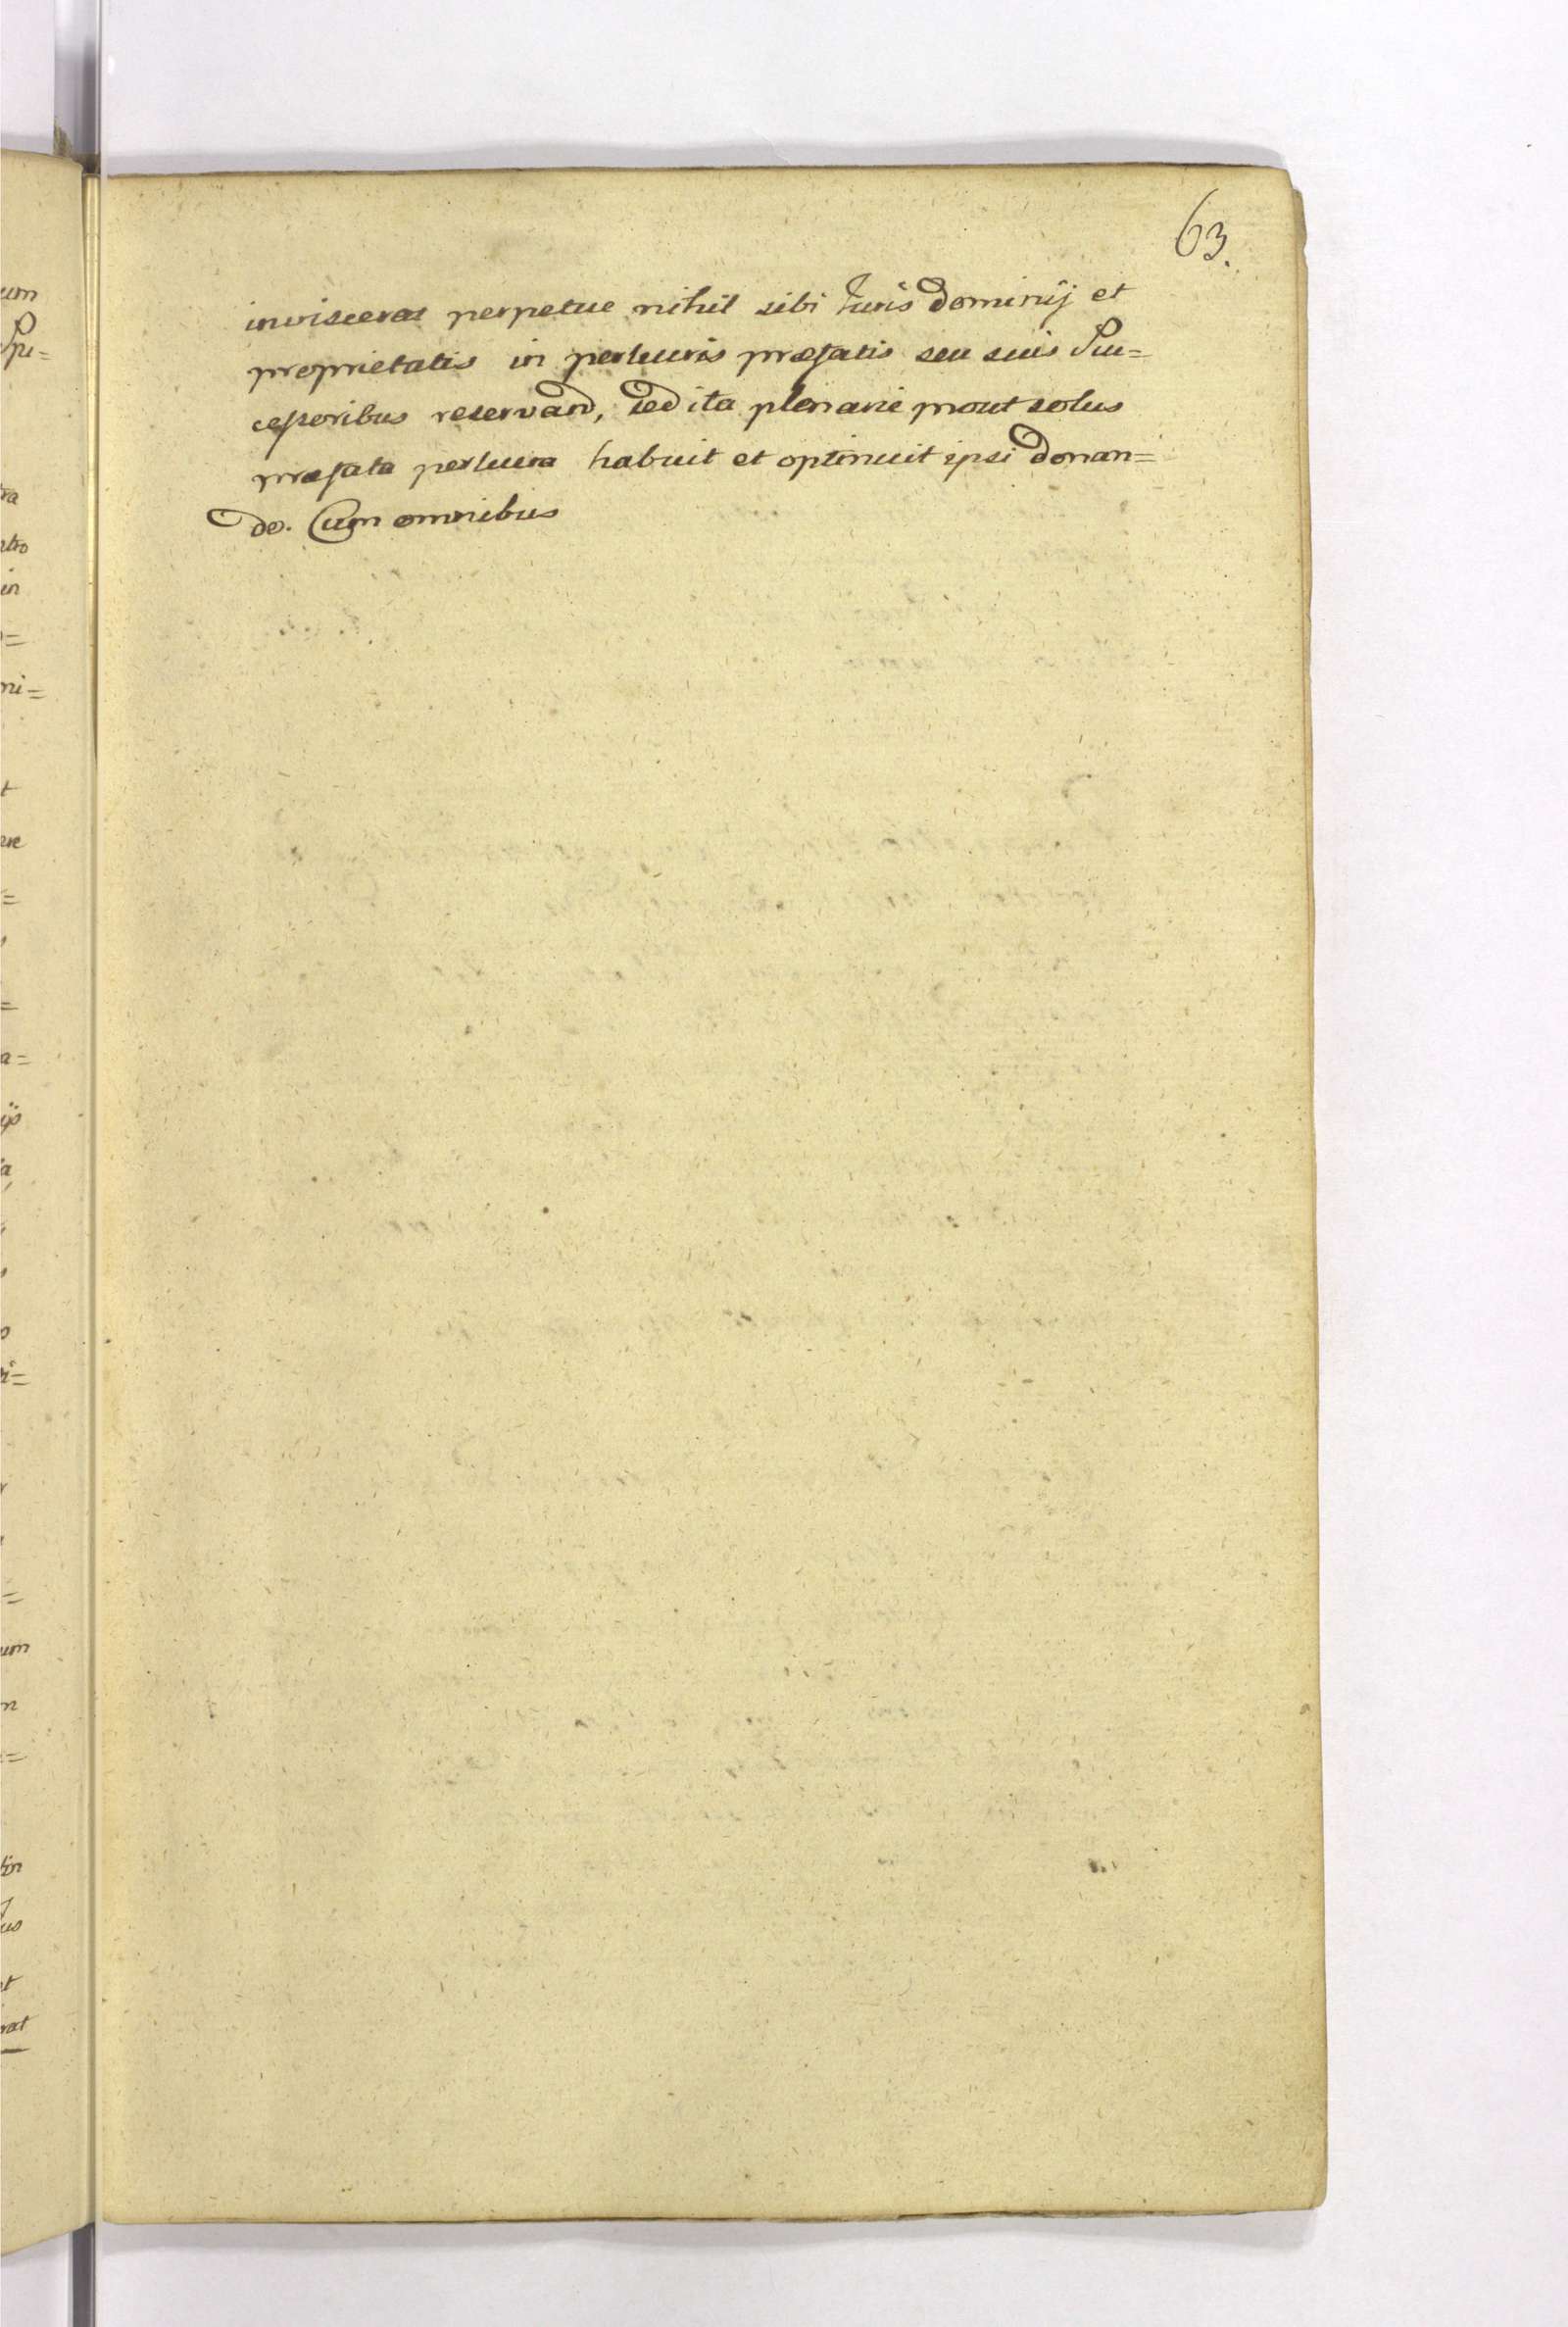 63.
inviscerat perpetue nihil sibi Iuris dominij et
proprietatis in perluuris præfatis seu suis Suc=
cessoribus reservand, sed ita plenarie prout solus
præfata perluura habuit et optinuit ipsi donan=
do. Cum omnibus